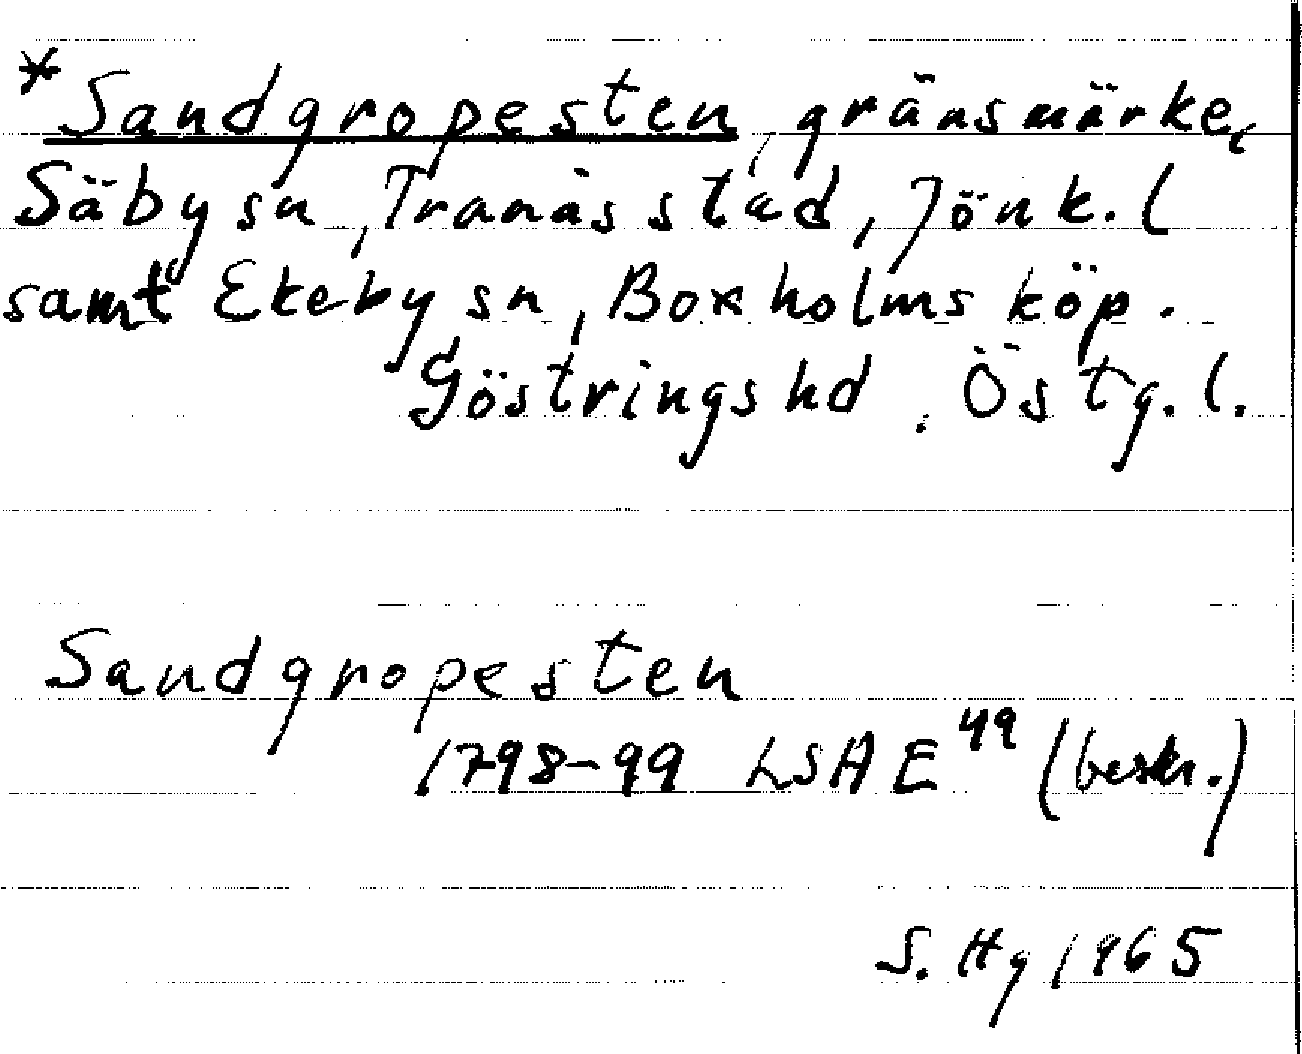 *Sandgropesten, gränsmärke,
Säby sn, Tranås stad, Jönk. l
samt Ekeby sn, Boxholms köp.
Göstrings hd. Östg. l.
Sandgropesten
1798-99 LSA E49 (beskr.)
S. Hg 1965